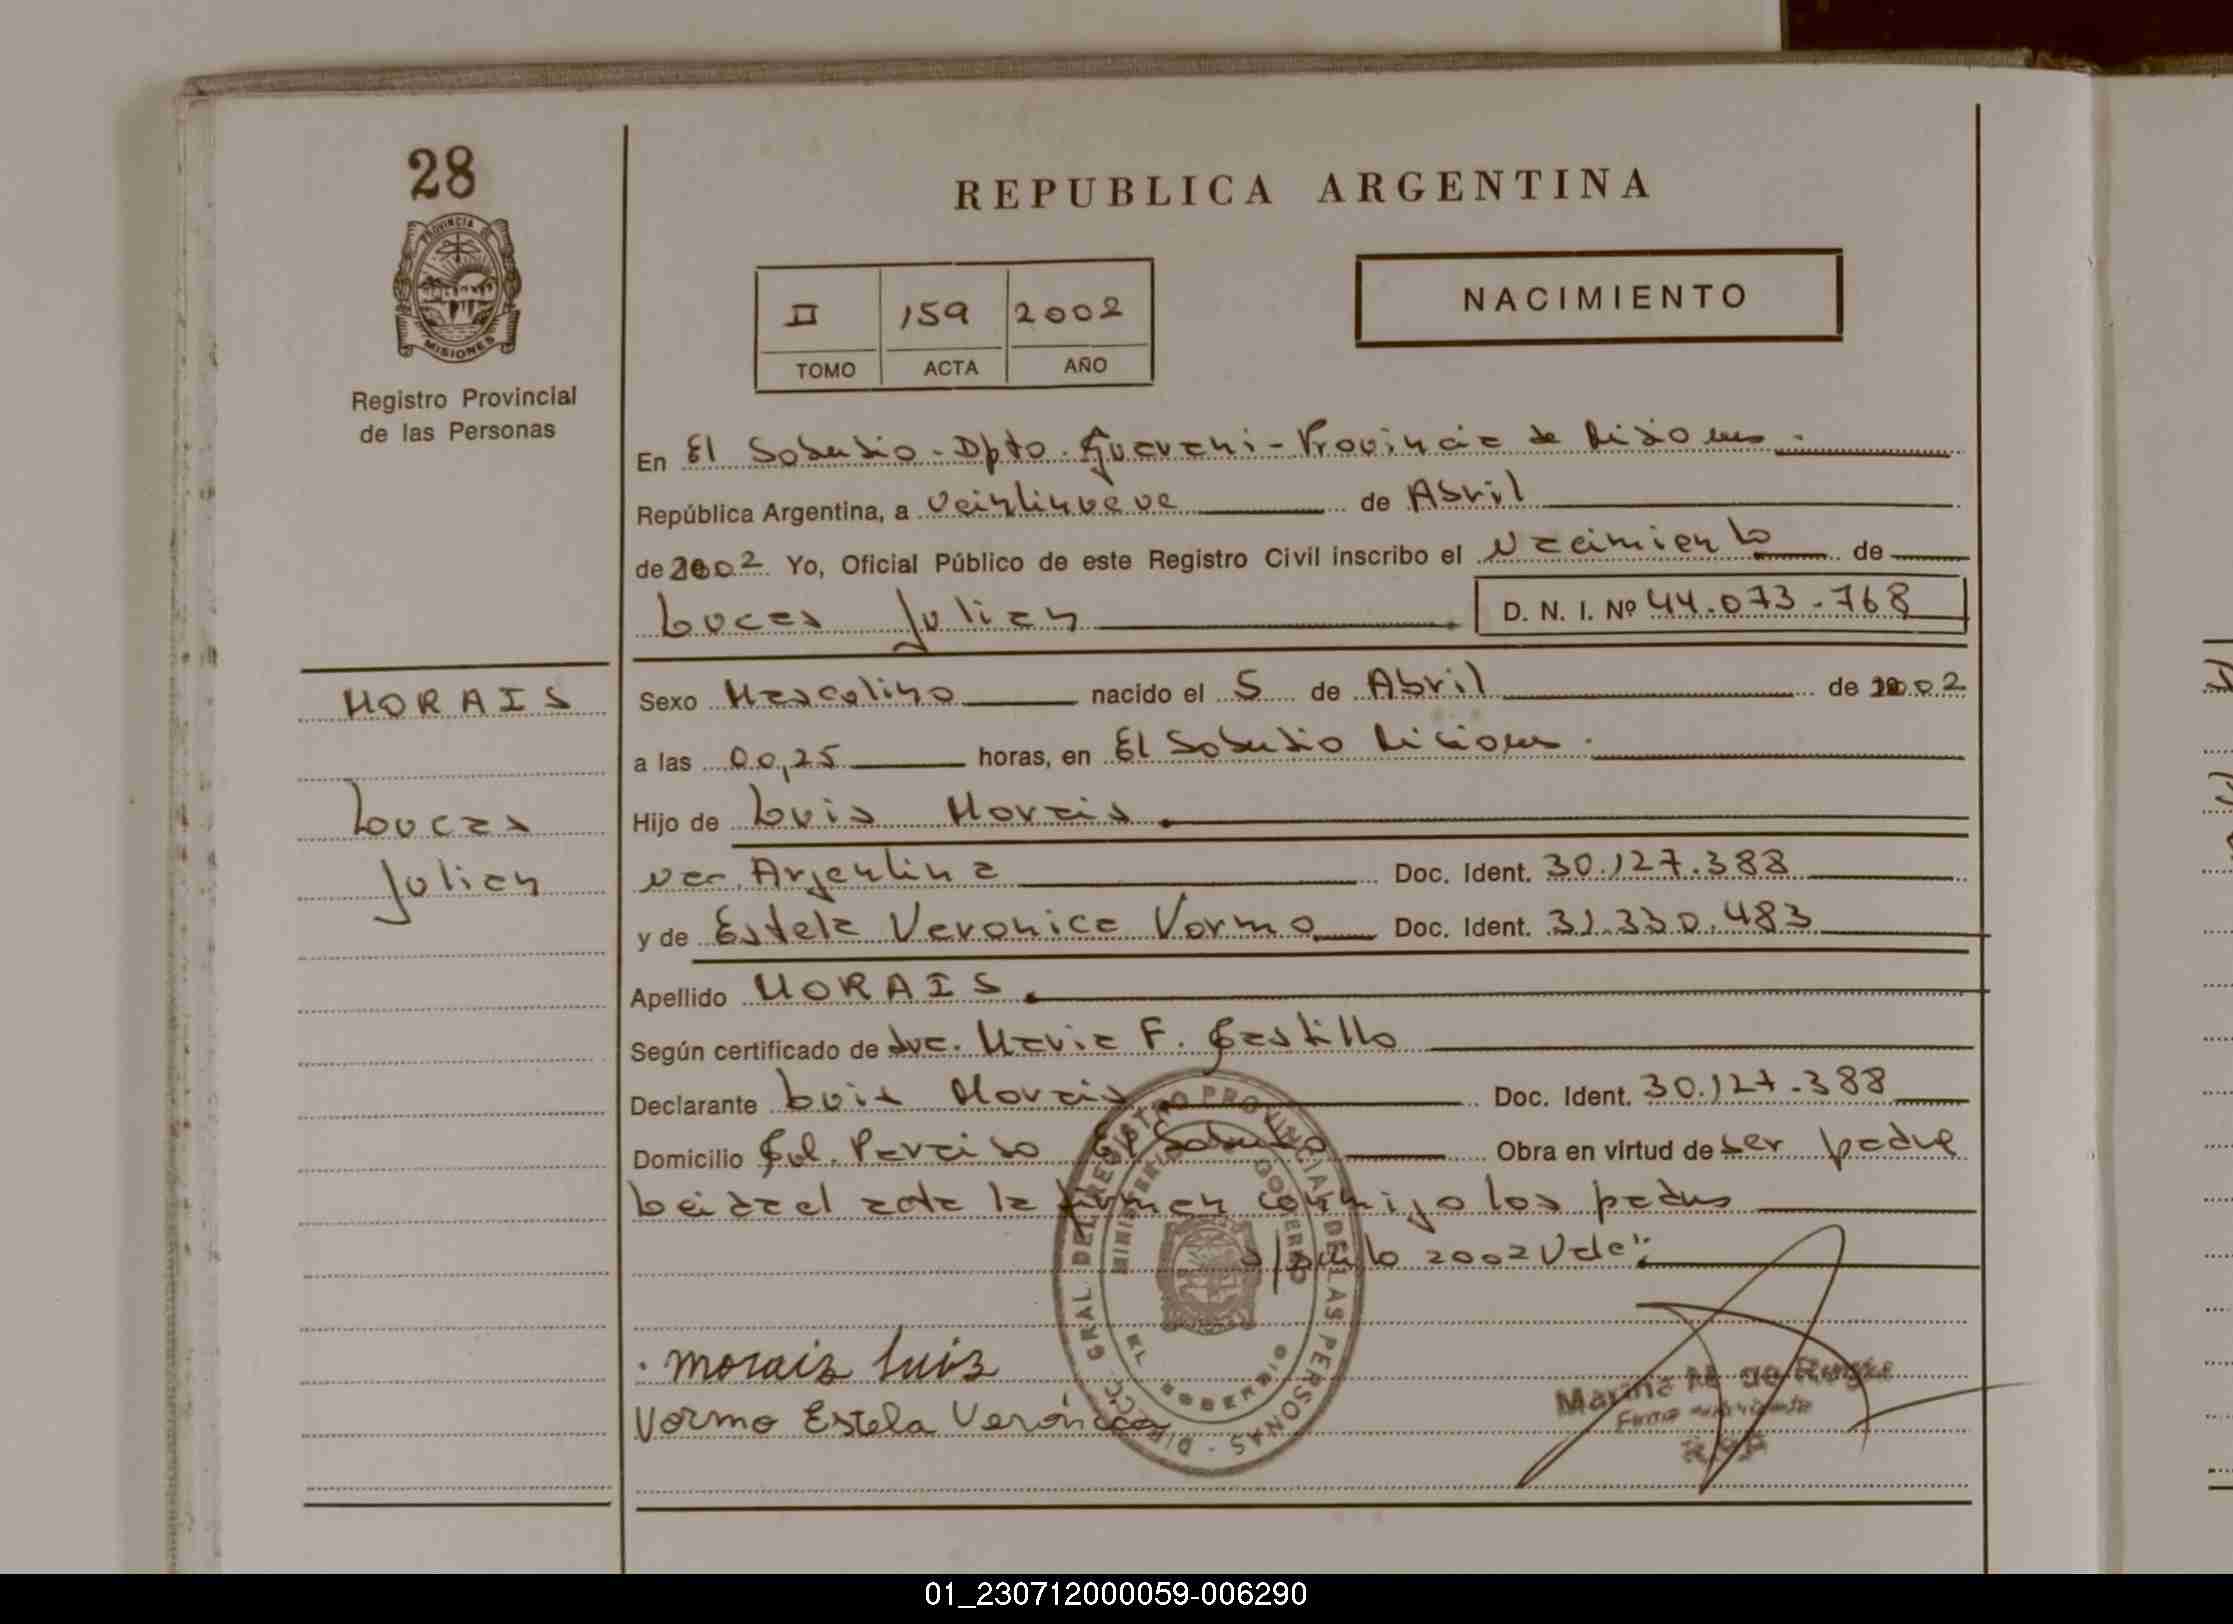 28
PROVINCIA DE
MISIONES
Registro Provincial
de las Personas
REPUBLICA ARGENTINA
II 159 2002
TOMO ACTA AÑO
NACIMIENTO
En El Soberbio - Dpto. Guarani - Provincia de Misiones.
República Argentina, a veintinueve de Abril
de 2002 Yo, Oficial Público de este Registro Civil inscribo el Nacimiento de
Lucas Julian D. N. I. Nº 44.073.768
MORAIS
Sexo Masculino nacido el 5 de Abril de 2002
a las 00,25 horas, en El Soberbio Misiones.
Lucas
Hijo de Luis Morais
Julian
nac. Argentina Doc. Ident. 30.127.388
y de Estela Veronica Vormo Doc. Ident. 31.330.483
Apellido MORAIS
Según certificado de dra. Maria F. Castillo
Declarante Luis Morais Doc. Ident. 30.127.388
Domicilio Col. Paraiso El Soberbio Obra en virtud de ser padre
Leida el acta la firman conmigo los padres
2002 Vale".
morais luis
Vormo Estela Verónica
DIRECC. GRAL DEL REGISTRO PROVINCIAL DE LAS PERSONAS
MINISTERIO DE GOBIERNO
EL SOBERBIO
Marina M. de
01_230712000059-006290